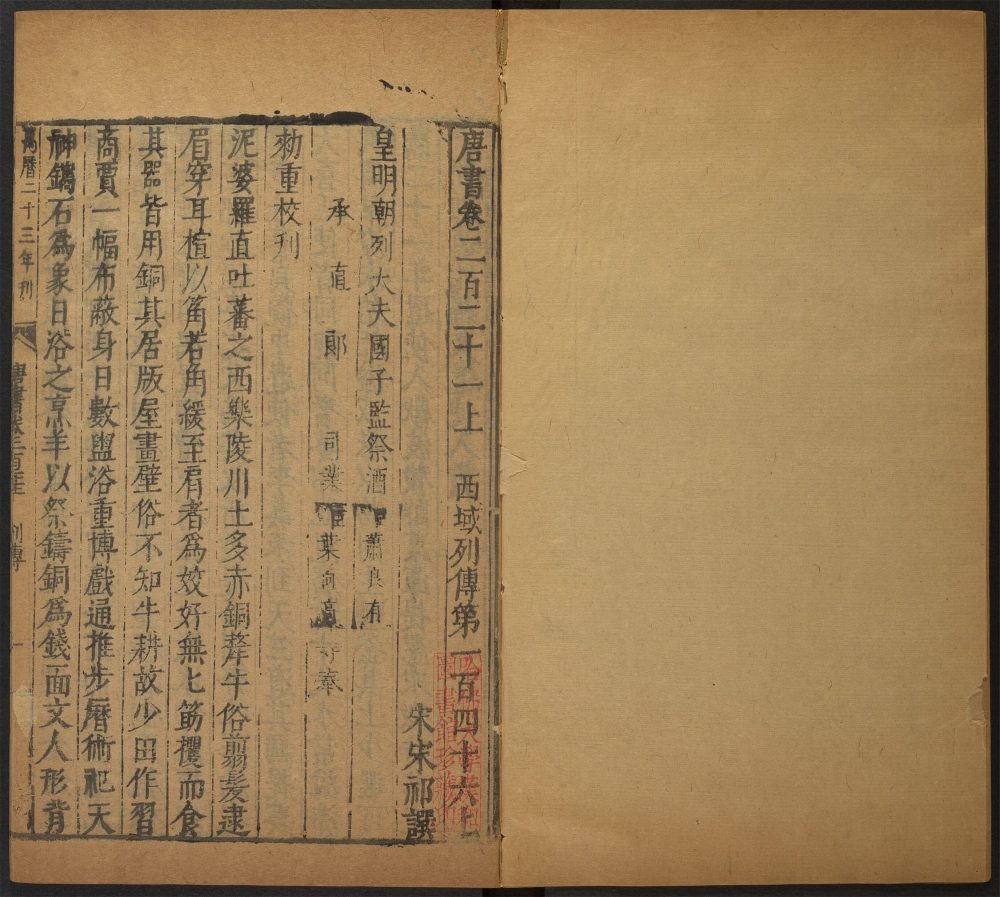 唐書卷二百二十一上　西域列傳第一百四十六上
宋宋祁譔
皇明朝列大夫國子監祭酒蕭良有
承直郎司業葉向高等奉
勑重校刋
泥婆羅直吐蕃之西樂陵川土多赤銅犛牛俗翦髮逮
眉穿耳楦以筩若角緩至肩者為姣好無匕筯攫而食
其器皆用銅其居版屋畫壁俗不知牛耕故少田作習
商賈一幅布蔽身日數盥浴重博戲通推步曆術祀天
神鐫石為象日浴之烹羊以祭鑄銅為錢面文人形背
萬曆二十三年刋
唐書卷二百二十一　列傳　一